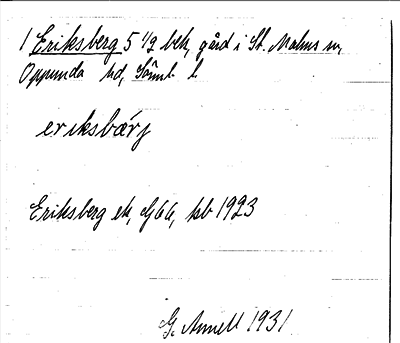 1 Eriksberg 5 1/2 hek, gård i St. Malms sn,
Oppunda hd, Söml. l.
eriksbærj
Eriksberg ek, G66, hb 1923
G. Annell 1931